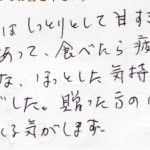 はしっとりとして甘す
あって、食べたら疲
な、ほっとした気持
した。贈った方の
る気がします。